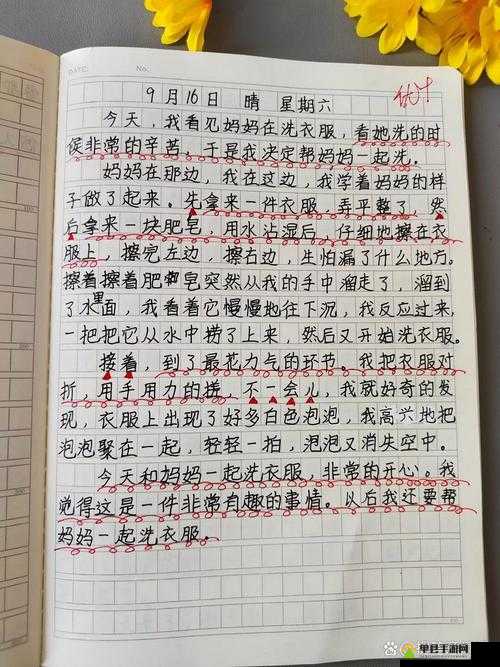 DATE: No.
优+
9月16日 晴 星期六
今天，我看见妈妈在洗衣服，看她洗的时
候非常的辛苦，于是我决定帮妈妈一起洗。
妈妈在那边，我在这边，我学着妈妈的样
子做了起来。先拿来一件衣服，弄平整了，然
后拿来一块肥皂，用水沾湿后，仔细地擦在衣
服上，擦完左边，擦右边，生怕漏了什么地方。
擦着擦着肥皂突然从我的手中溜走了，溜到
了水里面，我看着它慢慢地往下沉，我反应过来，
一把把它从水中捞了上来，然后又开始洗衣服。
接着，到了最花力气的环节。我把衣服对
折，用手用力的搓，不一会儿，我就好奇的发
现，衣服上出现了好多白色泡泡，我高兴地把
泡泡聚在一起，轻轻一拍，泡泡又消失空中。
今天和妈妈一起洗衣服，非常的开心。我
觉得这是一件非常有趣的事情。以后我还要帮
妈妈一起洗衣服。
单县手游网